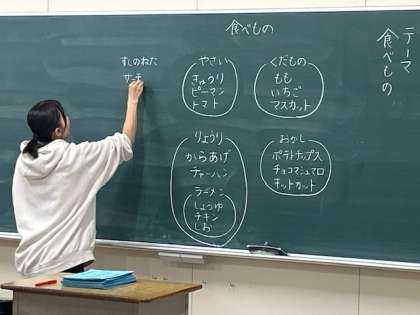 テーマ
食べもの
食べもの
すしのねた
サーモ
やさい
きゅうり
ピーマン
トマト
くだもの
もも
いちご
マスカット
りょうり
からあげ
チャーハン
ラーメン
しょうゆ
チキン
しお
おかし
ポテトチップス
チョコマシュマロ
キットカット